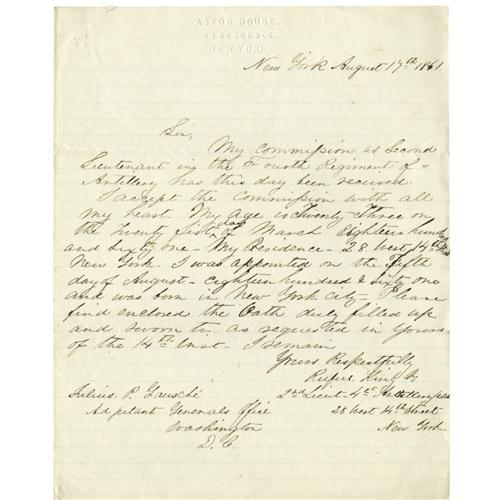 ASTOR HOUSE.
STETSON & CO.
NEW YORK
New York August 17th 1861
Sir,
My Commission as Second
Lieutenant in the Fourth Regiment of
Artillery has this day been received.
I accept the Commission with all
my heart. My age is Twenty Three on
the twenty first day of March Eighteen hund
and sixty one - My Residence - 28 West 14th St
New York. I was appointed on the Fifth
day of August - eighteen hundred & sixty one
and was born in New York City - Please
find enclosed the Oath duly filled up
and sworn to. as requested in Yours
of the 14th Inst. I remain
Yours Respectfully
Rufus King Jr
2nd Lieut. 4th Artillery
28 West 14th Street
New York.
Julius P. Garesché
Adjutant Generals Office
Washington
D. C.